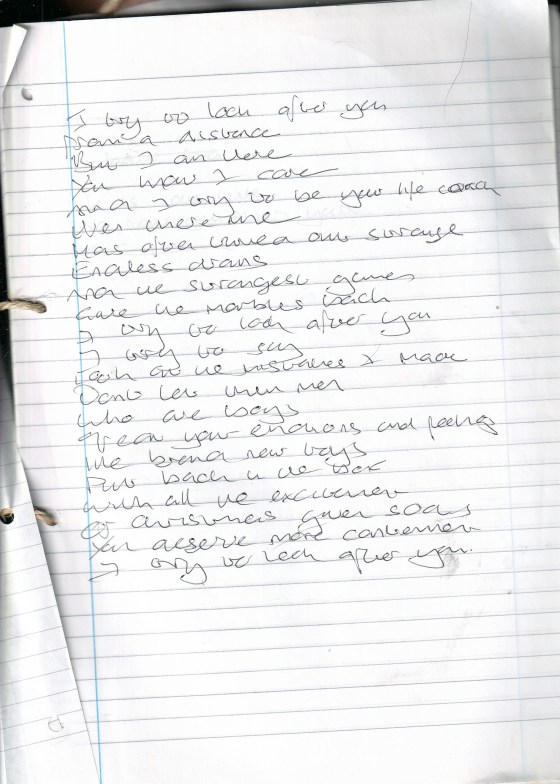 I try to look after you
From a distance
But I am here
You know I care
And I try to be your life coach
Has often turned out strange
Endless drams
And the strangest games
Gave the marbles back
I try to look after you
I try to say
Look at the mistakes I made
Dont let them men
Who are boys
Treat your emotions and feelings
like brand new toys
Put back in the box
With all the excitement
of christmas given socks
You deserve more contentment
I try to look after you.